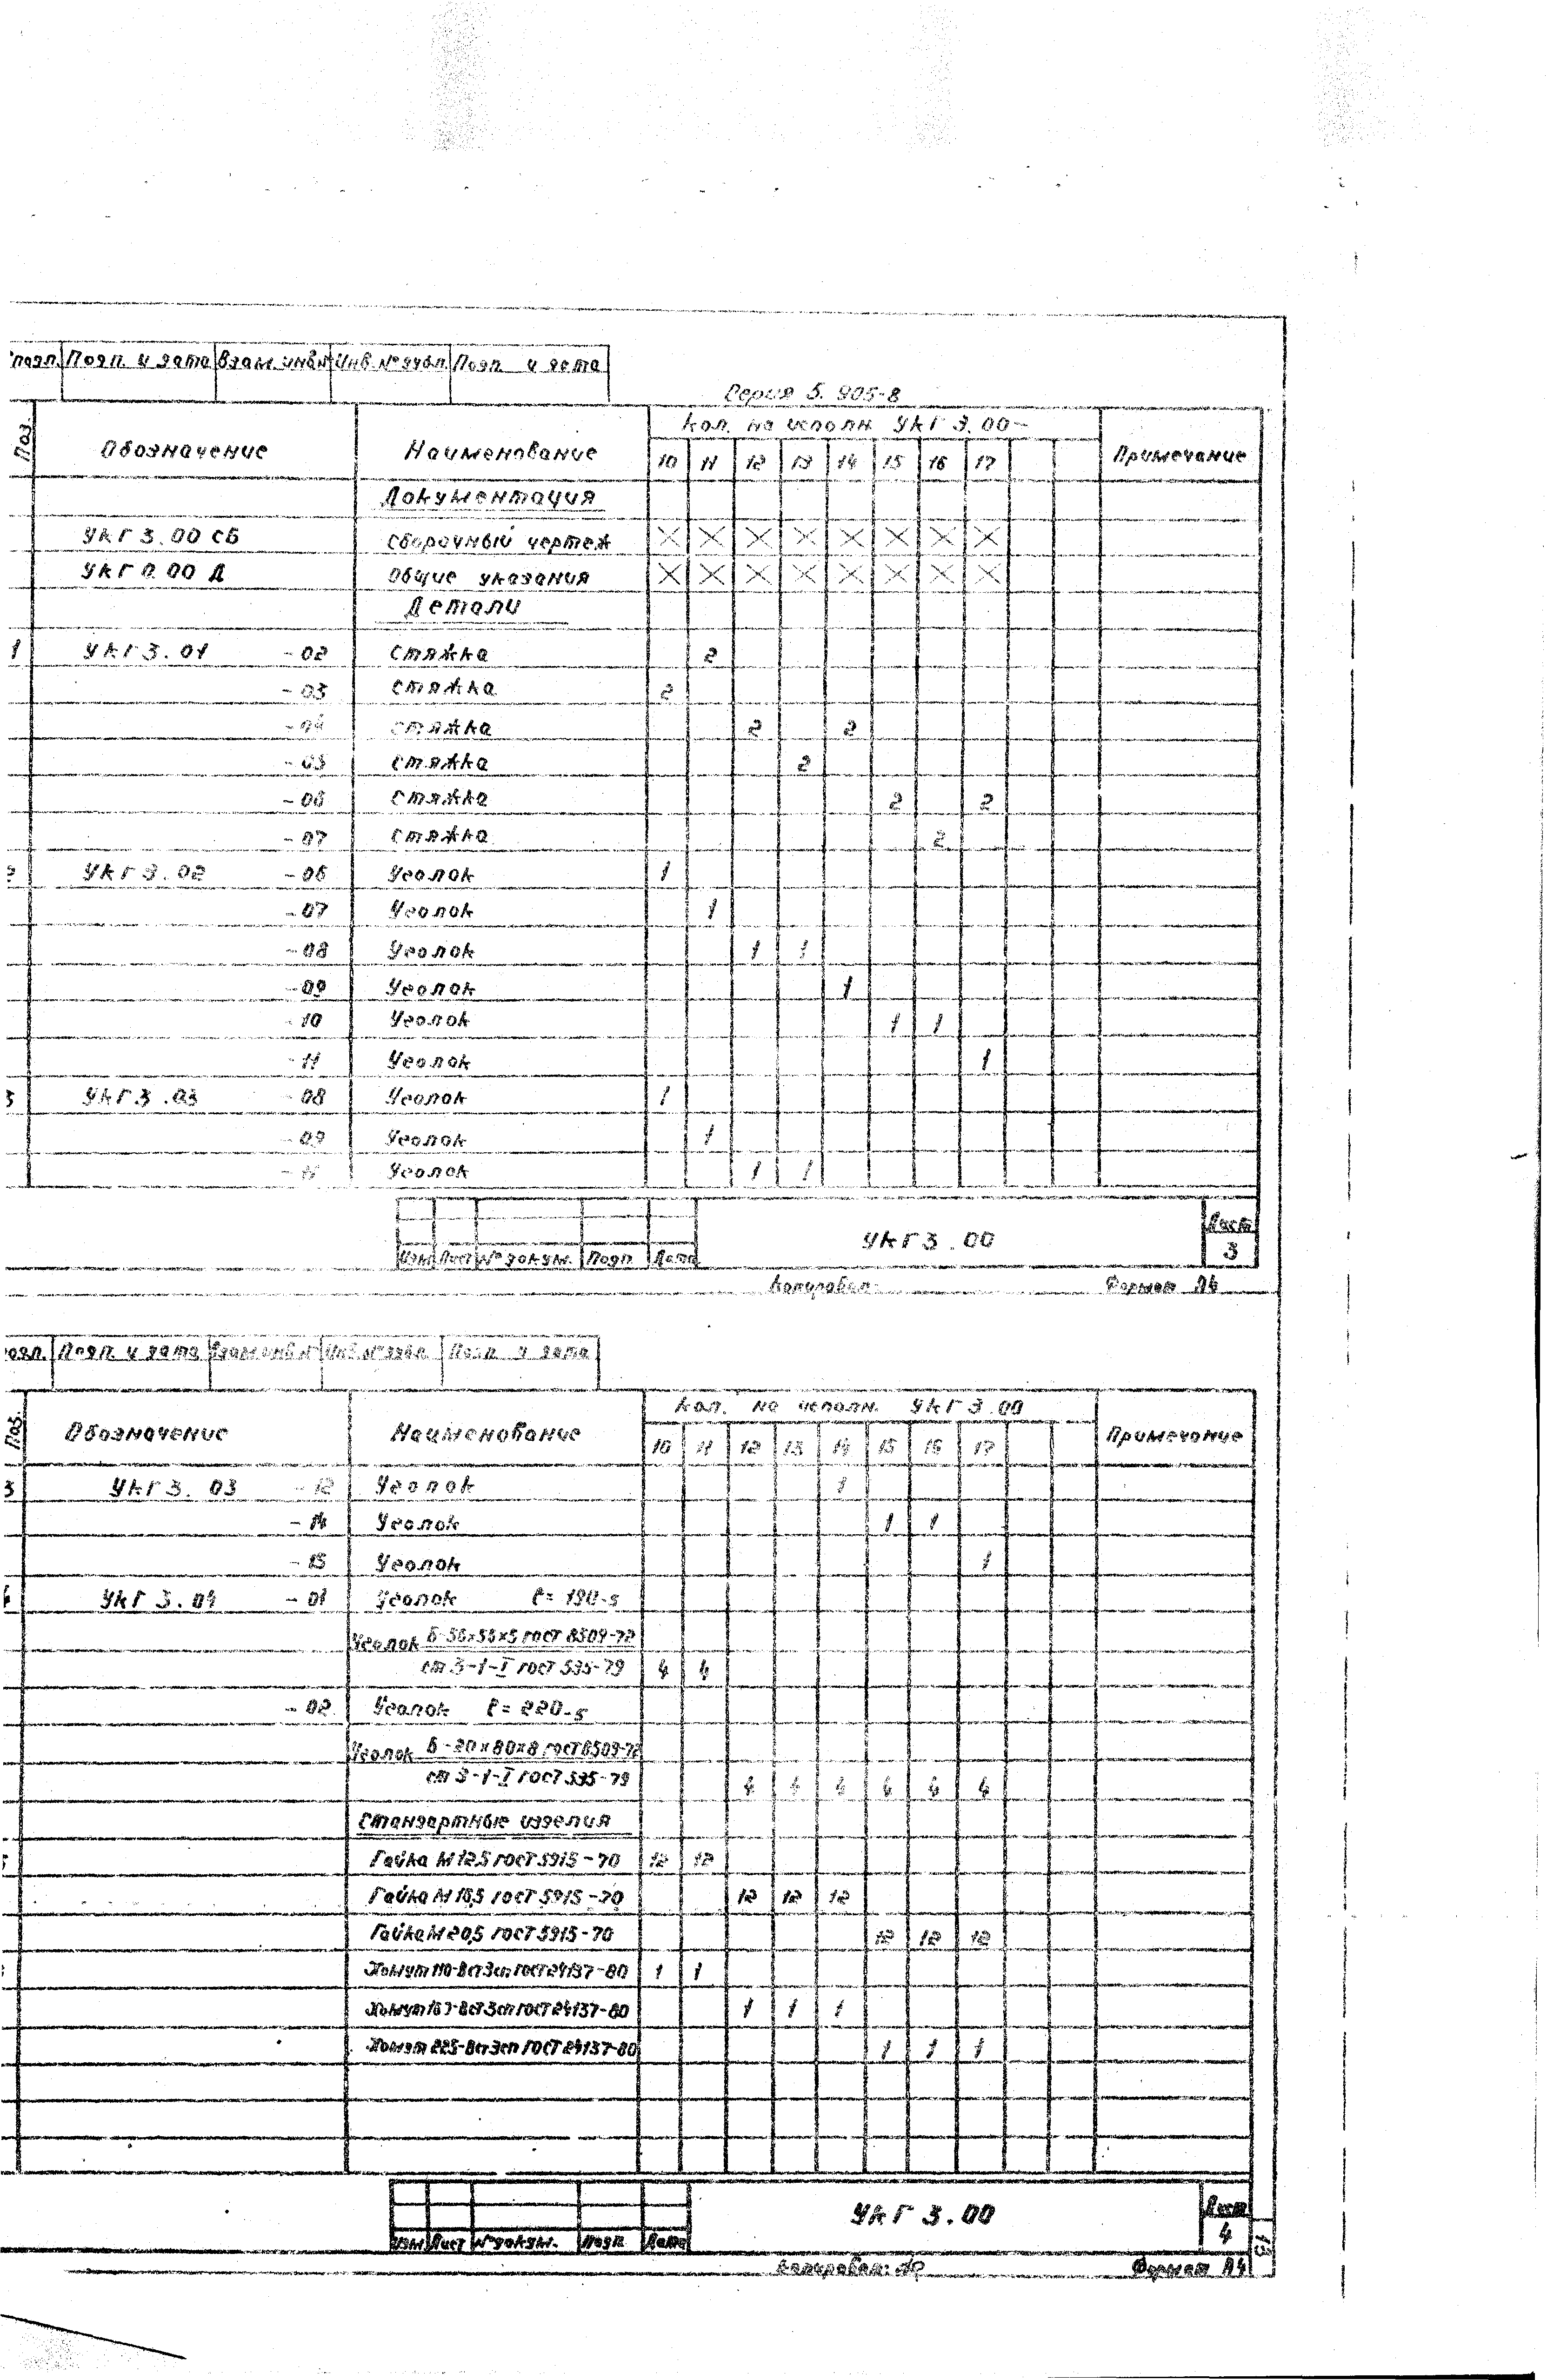 подл. Подп. и дата Взам. инв. № Инв. № дубл. Подп. и дата
Серия 5.905-8
Поз. Обозначение Наименование Кол. на исполн. УКГ 3.00- Примечание
10 11 12 13 14 15 16 17
Документация
УКГ 3.00 СБ Сборочный чертеж X X X X X X X X
УКГ 0.00 Д Общие указания X X X X X X X X
Детали
1 УКГ 3.01 -02 Стяжка 2
-03 Стяжка 2
-04 Стяжка 2 2
-05 Стяжка 2
-06 Стяжка 2 2
-07 Стяжка 2
2 УКГ 3.02 -06 Уголок 1
-07 Уголок 1
-08 Уголок 1 1
-09 Уголок 1
-10 Уголок 1 1
-11 Уголок 1
3 УКГ 3.03 -08 Уголок 1
-09 Уголок 1
-11 Уголок 1 1
Изм. Лист № докум. Подп. Дата УКГ 3.00 Лист 3
Копировал: Формат А4
подл. Подп. и дата Взам. инв. № Инв. № дубл. Подп. и дата
Поз. Обозначение Наименование Кол. на исполн. УКГ 3.00 Примечание
10 11 12 13 14 15 16 17
3 УКГ 3.03 -12 Уголок 1
-14 Уголок 1 1
-15 Уголок 1
4 УКГ 3.04 -01 Уголок ℓ= 190-5
Уголок Б-56×56×5 ГОСТ 8509-72
ст 3-1-I ГОСТ 535-79 4 4
-02 Уголок ℓ= 220-5
Уголок Б-80×80×8 ГОСТ 8509-72
ст 3-1-I ГОСТ 535-79 4 4 4 4 4 4
Стандартные изделия
Гайка М12.5 ГОСТ 5915-70 12 12
Гайка М16,5 ГОСТ 5915-70 12 12 12
Гайка М20,5 ГОСТ 5915-70 12 12 12
Хомут 110-8 ст3сп ГОСТ 24137-80 1 1
Хомут ст3сп ГОСТ 24137-80 1 1 1
Хомут 225-8 ст3сп ГОСТ 24137-80 1 1 1
Изм. Лист № докум. Подп. Дата УКГ 3.00 Лист 4
Копировал: Формат А4